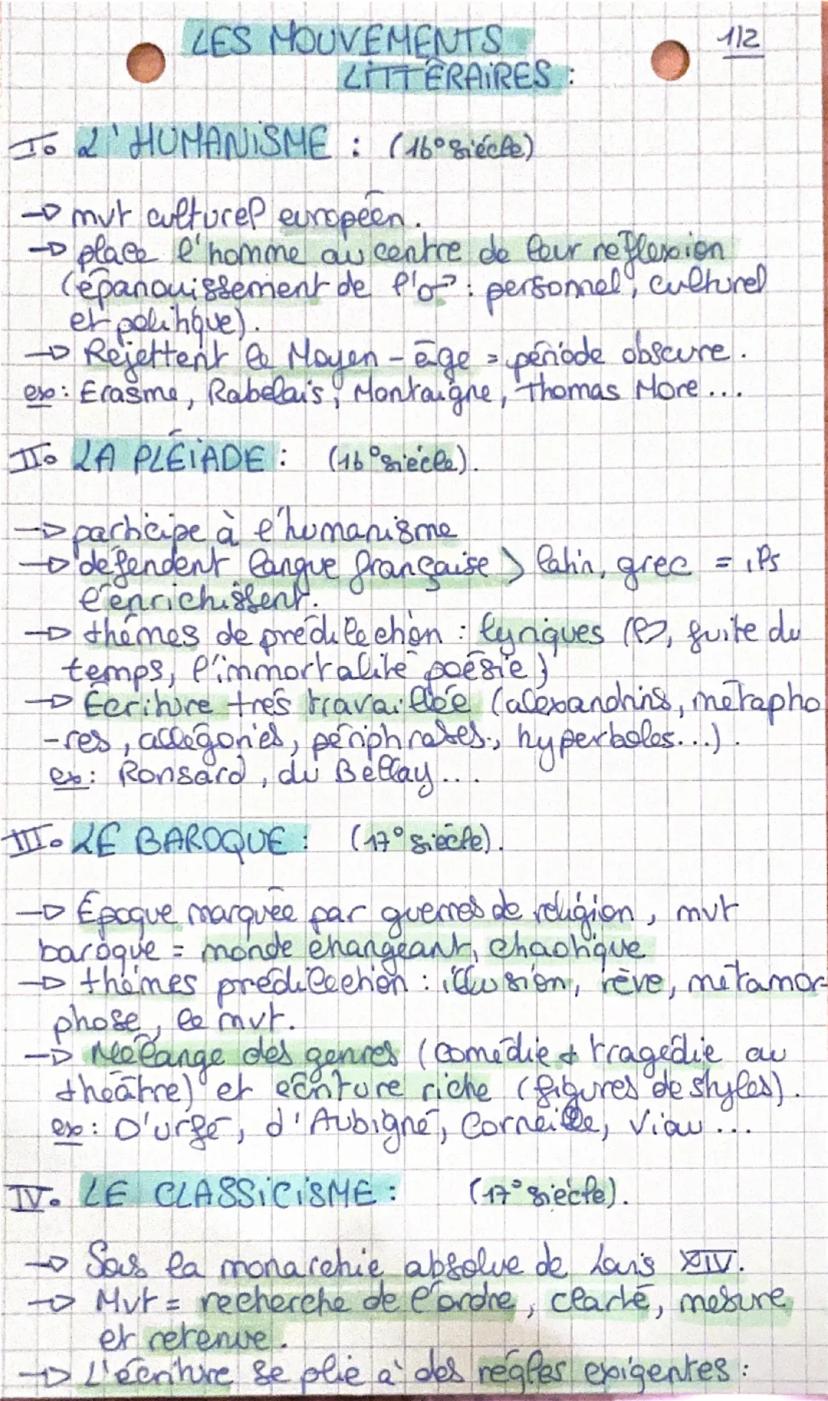 LES MOUVEMENTS 1/2
LITTÉRAIRES :
I. L'HUMANISME : (16° siècle)
→ mvt culturel européen.
→ place l'homme au centre de leur réflexion
(épanouissement de l'♂ : personnel, culturel
et politique).
→ Rejettent le Moyen-âge = période obscure.
ex : Erasme, Rabelais, Montaigne, Thomas More...
II. LA PLÉIADE : (16° siècle).
→ participe à l'humanisme
→ défendent langue française > latin, grec = ils
l'enrichissent.
→ thèmes de prédilection : lyriques (♡, fuite du
temps, l'immortalité poésie)
→ Écriture très travaillée (alexandrins, métapho
-res, allégories, périphrases, hyperboles...).
ex : Ronsard, du Bellay...
III. LE BAROQUE : (17° siècle).
→ Epoque marquée par guerres de religion, mvt
baroque = monde changeant, chaotique
→ thèmes prédilection : illusion, rêve, métamor-
phose, le mvt.
→ Mélange des genres (comédie + tragédie au
théâtre) et écriture riche (figures de styles).
ex : D'urfé, d'Aubigné, Corneille, Viau...
IV. LE CLASSICISME : (17° siècle).
→ Sous la monarchie absolue de Louis XIV.
→ Mvt = recherche de l'ordre, clarté, mesure
et retenue.
→ L'écriture se plie à des règles exigentes :